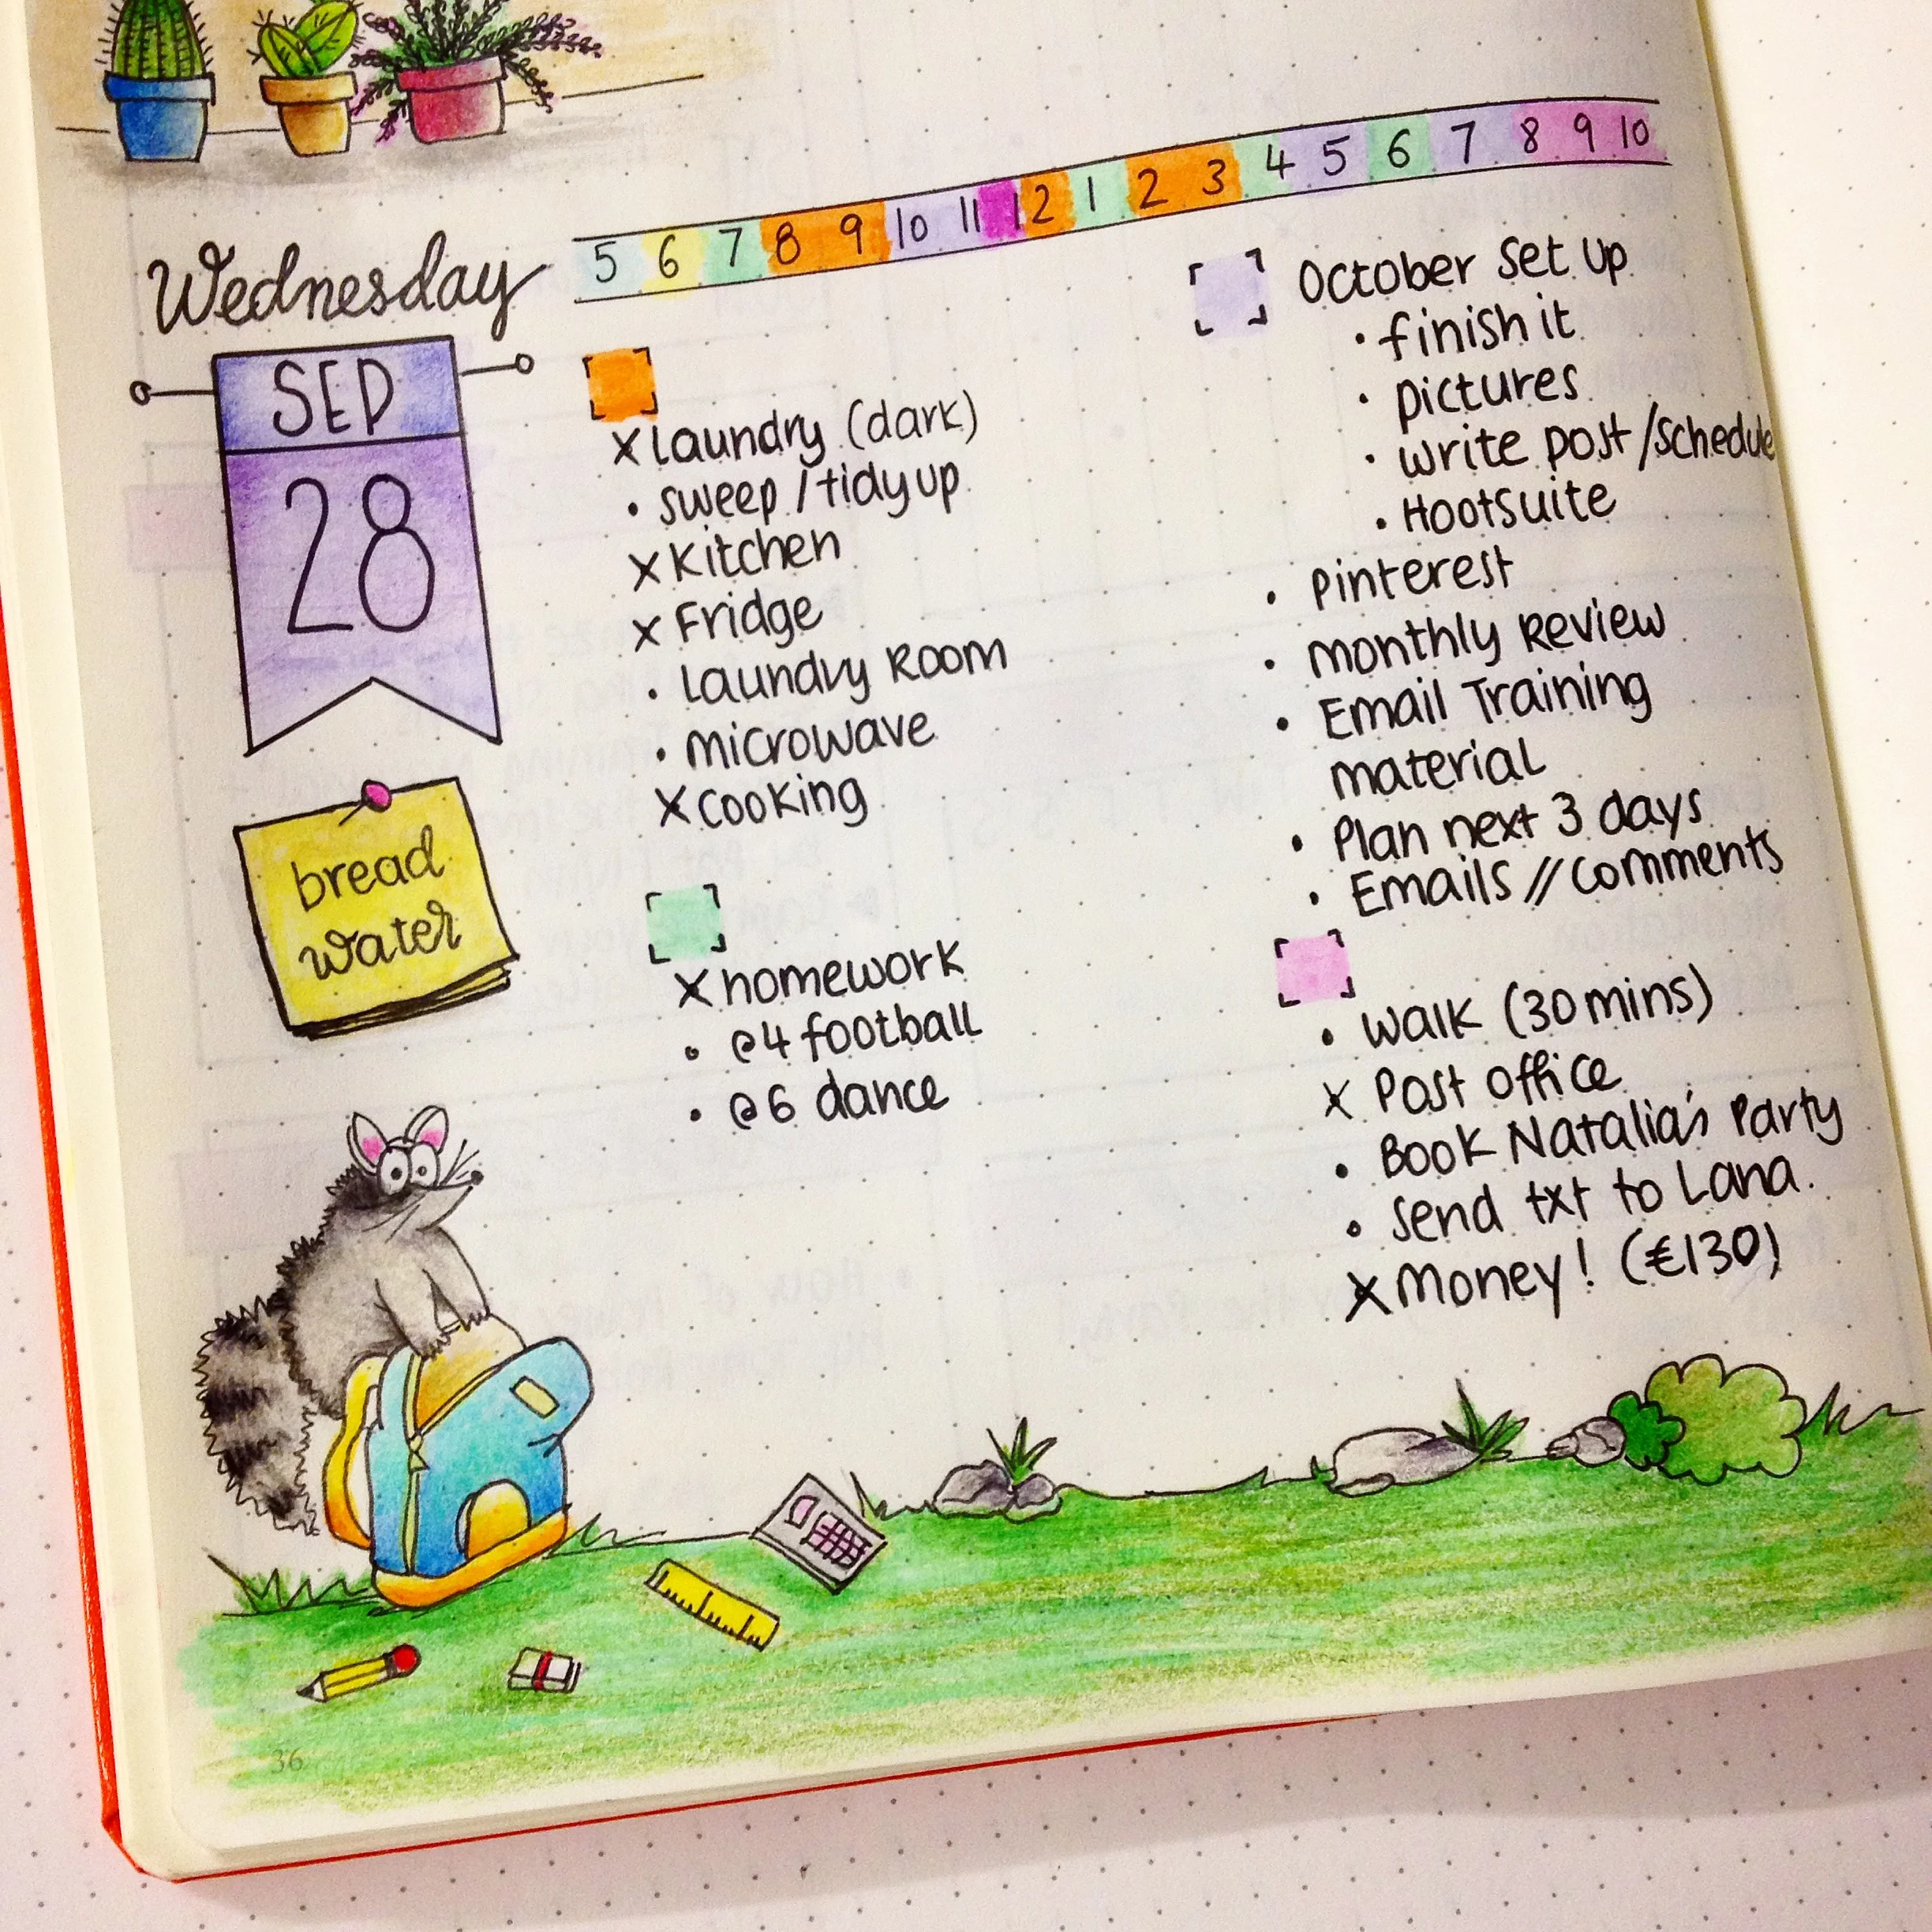 5 6 7 8 9 10 11 12 1 2 3 4 5 6 7 8 9 10
Wednesday
SEP
28
bread
water
x Laundry (dark)
• sweep / tidy up
x Kitchen
x Fridge
• Laundry Room
• microwave
x cooking
x homework
• @4 football
• @6 dance
October Set Up
• finish it
• pictures
• write post / schedule
• Hootsuite
• Pinterest
• monthly Review
• Email Training
material
• Plan next 3 days
• Emails // comments
• Walk (30 mins)
x Post office
• Book Natalia's Party
• Send txt to Lana.
x Money! (€130)
36